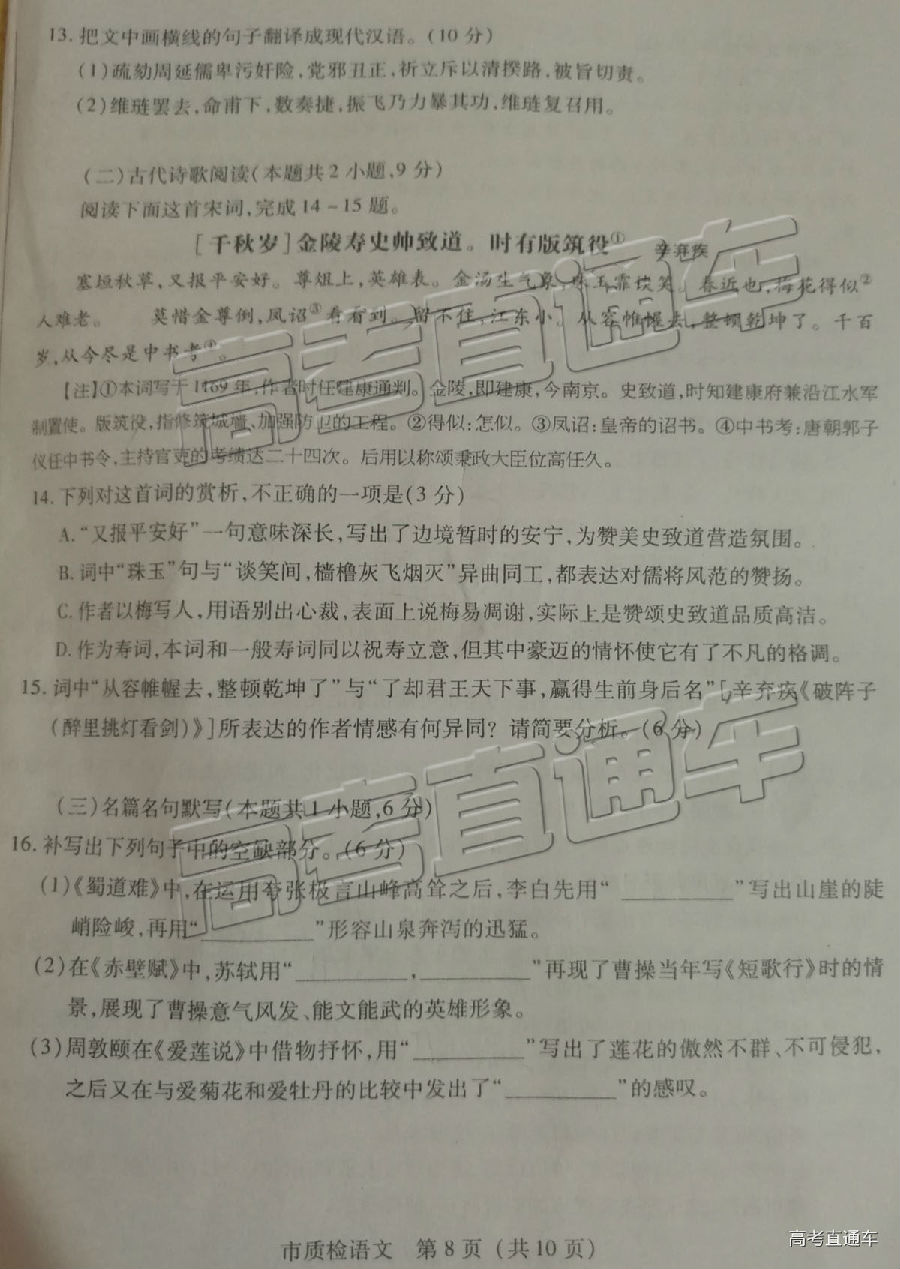 13.把文中画横线的句子翻译成现代汉语。(10分)
(1)疏劾周延儒卑污奸险,党邪丑正,祈立斥以清揆路,被旨切责。
(2)维琏罢去,命甫下,数奏捷,振飞乃力暴其功,维琏复召用。
(二)古代诗歌阅读(本题共2小题,9分)
阅读下面这首宋词,完成14-15题。
[千秋岁]金陵寿史帅致道。时有版筑役① 辛弃疾
塞垣秋草,又报平安好。尊俎上,英雄表。金汤生气象,珠玉霏谈笑。春近也,梅花得似②
人难老。 莫惜金尊倒,凤诏③看看到。留不住,江东小。从容帷幄去,整顿乾坤了。千百
岁,从今尽是中书考④。
[注]①本词写于1169年,作者时任建康通判。金陵,即建康,今南京。史致道,时知建康府兼沿江水军
制置使。版筑役,指修筑城墙、加强防卫的工程。②得似:怎似。③凤诏:皇帝的诏书。④中书考:唐朝郭子
仪任中书令,主持官吏的考绩达二十四次。后用以称颂秉政大臣位高任久。
14.下列对这首词的赏析,不正确的一项是(3分)
A.“又报平安好”一句意味深长,写出了边境暂时的安宁,为赞美史致道营造氛围。
B.词中“珠玉”句与“谈笑间,樯橹灰飞烟灭”异曲同工,都表达对儒将风范的赞扬。
C.作者以梅写人,用语别出心裁,表面上说梅易凋谢,实际上是赞颂史致道品质高洁。
D.作为寿词,本词和一般寿词同以祝寿立意,但其中豪迈的情怀使它有了不凡的格调。
15.词中“从容帷幄去,整顿乾坤了”与“了却君王天下事,赢得生前身后名”[辛弃疾《破阵子
(醉里挑灯看剑)》]所表达的作者情感有何异同?请简要分析。(6分)
(三)名篇名句默写(本题共1小题,6分)
16.补写出下列句子中的空缺部分。(6分)
(1)《蜀道难》中,在运用夸张极言山峰高耸之后,李白先用“__________”写出山崖的陡
峭险峻,再用“__________”形容山泉奔泻的迅猛。
(2)在《赤壁赋》中,苏轼用“__________,__________”再现了曹操当年写《短歌行》时的情
景,展现了曹操意气风发、能文能武的英雄形象。
(3)周敦颐在《爱莲说》中借物抒怀,用“__________”写出了莲花的傲然不群、不可侵犯,
之后又在与爱菊花和爱牡丹的比较中发出了“__________”的感叹。
市质检语文 第8页(共10页)
高考直通车
高考直通车
高考直通车